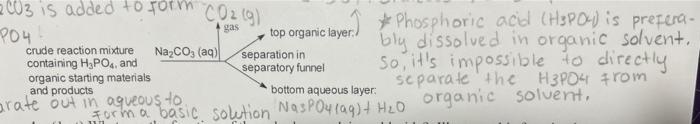 2CO3 is added to form CO2 (g)
PO4
gas
top organic layer:
crude reaction mixture
containing H3PO4, and
organic starting materials
and products
Na2CO3 (aq)
separation in
separatory funnel
bottom aqueous layer:
Na3PO4(aq) + H2O
arate out in aqueous to
form a basic solution
* Phosphoric acid (H3PO4) is prefera-
bly dissolved in organic solvent.
So, it's impossible to directly
separate the H3PO4 from
organic solvent.